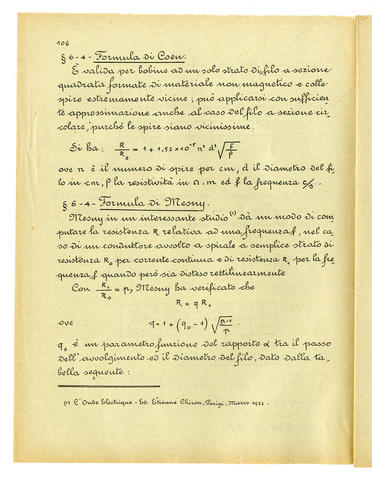 106
§ 6-4- Formula di Coen.
È valida per bobine ad un solo strato di filo a sezione
quadrata formate di materiale non magnetico e colle
spire estremamente vicine; può applicarsi con sufficien
te approssimazione anche al caso del filo a sezione cir
colare, purchè le spire siano vicinissime.
Si ha: R/R₀ = 1 + 1,52×10⁻⁵ n² d³ √(f/ρ)
ove n è il numero di spire per cm, d il diametro del fi
lo in cm, ρ la resistività in Ω.m ed f la frequenza c/s.
§ 6-4- Formula di Mesny.
Mesny in un interessante studio⁽¹⁾ dà un modo di com
putare la resistenza R relativa ad una frequenza f, nel ca
so di un conduttore avvolto a spirale a semplice strato di
resistenza R₀ per corrente continua e di resistenza R₁ per la fre
quenza f quando però sia disteso rettilineamente
Con R₁/R₀ = p, Mesny ha verificato che
R = q R₀
ove q = 1 + (q₀ - 1) √
q₀ è un parametro, funzione del rapporto α tra il passo
dell'avvolgimento ed il diametro del filo, dato dalla ta,
bella seguente:
(1) L'Onde Electrique - Ed. Etienne Chiron, Parigi, Marzo